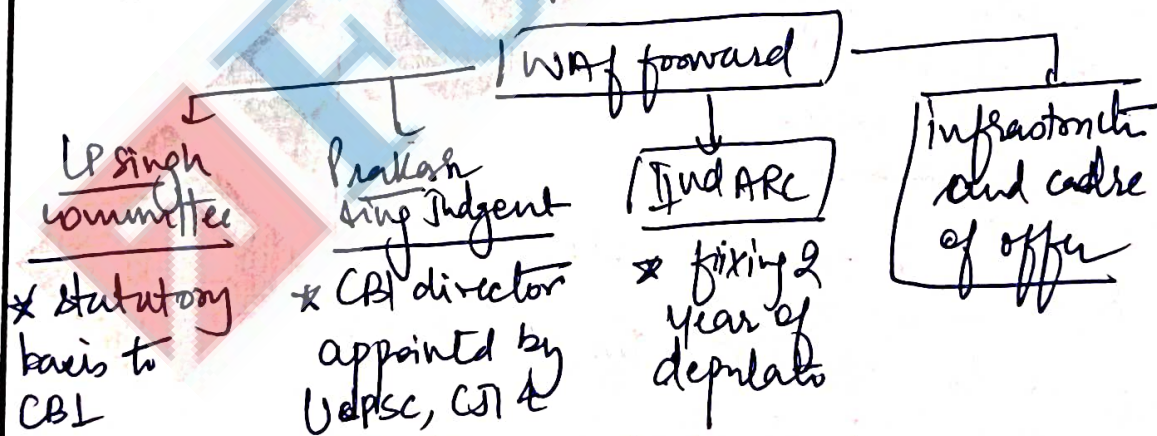 WAf forward
LP singh
committee
* statutory
basis to
CBI
Prakash
sing Judgent
* CBI director
appointed by
UdPSC, CJI &
IInd ARC
* fixing 2
year of
deputato
infrastructi
and cadre
of offer